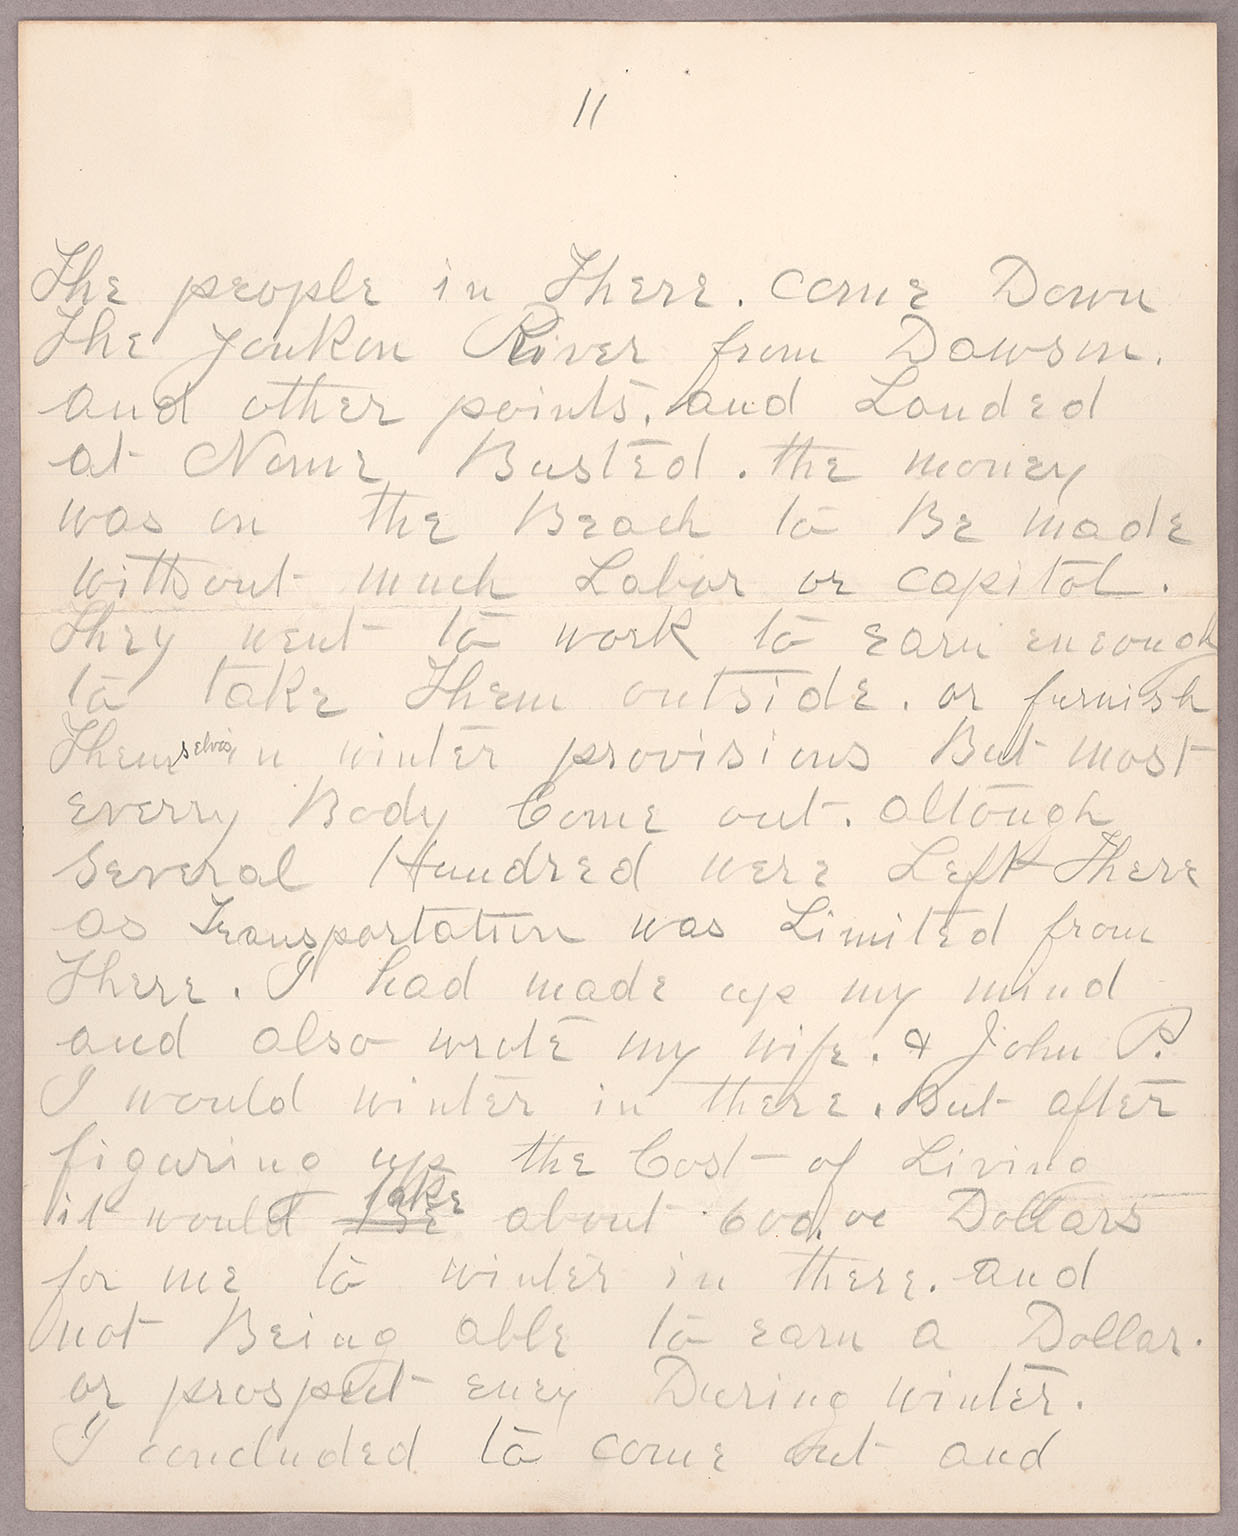 11
The people in There. come Down
The Youkon River from Dawson.
and other points, and Landed
at Nome Busted. the money
was on the Beach to Be made
without much Labor or capitol.
They went to work to earn eneough
to take Them outside. or furnish
Themselves in winter provisions But most
everry Body Come out. altough
several Hundred were Left There
as Transportation was Limited from
There. I had made up my mind
and also wrote my wife. & John P.
I would winter in there. But after
figuring up the Cost of Living
it would Be take about 600.00 Dollars
for me to winter in there. and
not Being able to earn a Dollar.
or prospect eney During winter.
I concluded to come out and